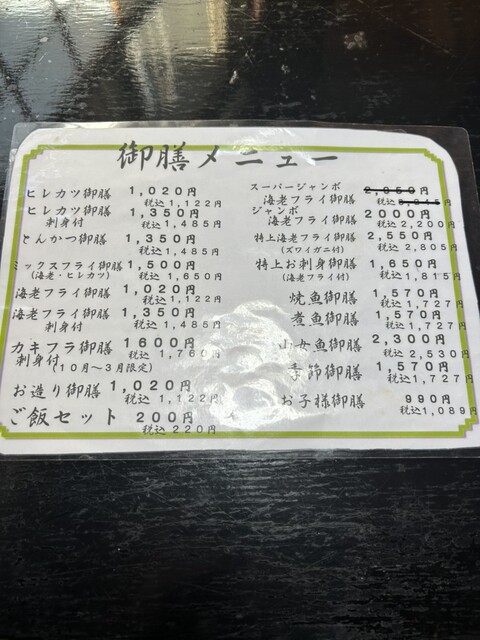 御膳メニュー
ヒレカツ御膳 1,020円
税込 1,122円
ヒレカツ御膳 1,350円
刺身付 税込 1,485円
とんかつ御膳 1,350円
税込 1,485円
ミックスフライ御膳 1,500円
(海老・ヒレカツ) 税込 1,650円
海老フライ御膳 1,020円
税込 1,122円
海老フライ御膳 1,350円
刺身付 税込 1,485円
カキフラ御膳 1600円
刺身付 税込 1,760円
(10月～3月限定)
お造り御膳 1,020円
税込 1,122円
ご飯セット 200円
税込 220円
スーパージャンボ
海老フライ御膳 円
税込 円
ジャンボ 2000円
海老フライ御膳 税込 2,200円
特上海老フライ御膳 2,550円
(ズワイガニ付) 税込 2,805円
特上お刺身御膳 1,650円
(海老フライ付) 税込 1,815円
焼魚御膳 1,570円
税込 1,727円
煮魚御膳 1,570円
税込 1,727円
山女魚御膳 2,300円
税込 2,530円
季節御膳 1,570円
税込 1,727円
お子様御膳 990円
税込1,089円